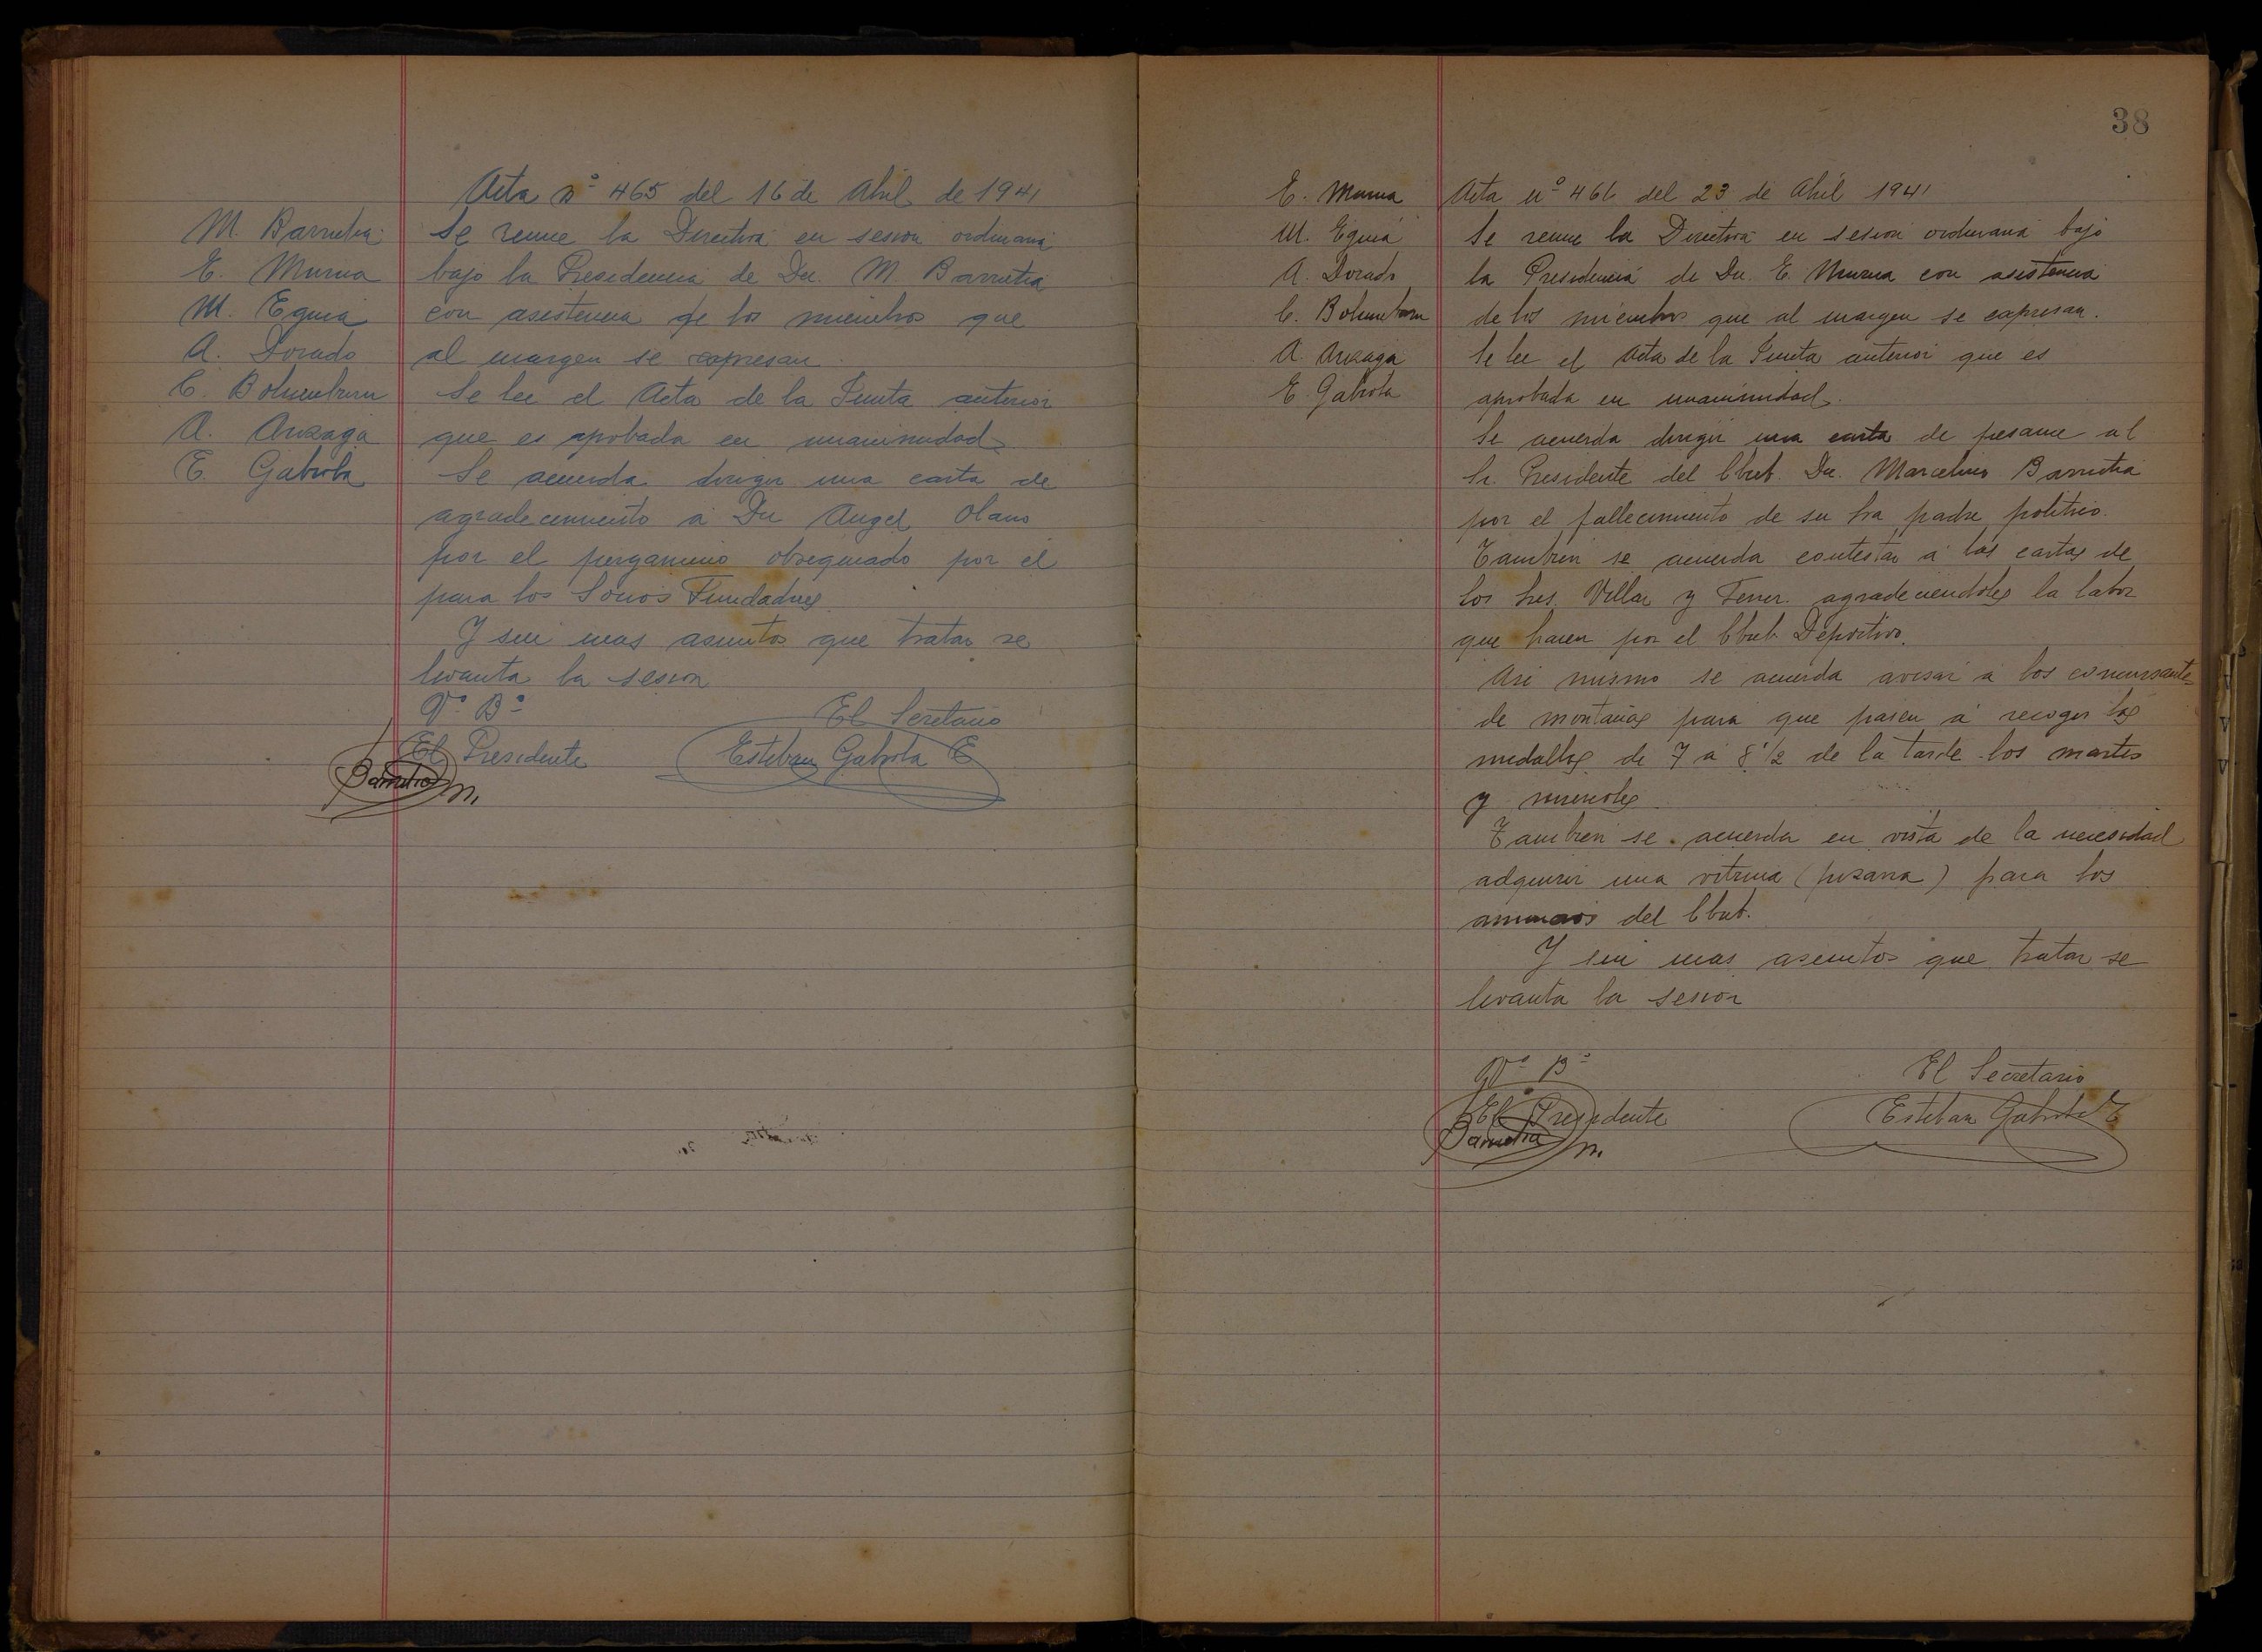 Acta nº 465 del 16 de Abril de 1941
M. Barrutia
E. Murua
M. Eguia
A. Dorado
C. Bolumburu
A. Anzaga
E. Gabiola
Se reune la Directiva en sesion ordinaria
bajo la Presidencia de Dn. M. Barrutia
con asistencia de los miembros que
al margen se expresan
Se lee el Acta de la Junta anterior
que es aprobada en unanimidad
Se acuerda dirigir una carta de
agradecimiento a Dn Angel Olano
por el pergamino obsequiado por el
para los Socios Fundadores
Y sin mas asuntos que tratar se
levanta la sesion
Vº Bº
El Secretario
El Presidente
Esteban Gabiola E
Barrutia M.
38
E. Murua
M. Eguia
A. Dorado
C. Bolumburu
A. Anzaga
E. Gabiola
Acta nº 466 del 23 de Abril 1941
Se reune la Directiva en sesion ordinaria bajo
la Presidencia de Dn. E. Murua con asistencia
de los miembros que al margen se expresan.
Se lee el Acta de la Junta anterior que es
aprobada en unanimidad.
Se acuerda dirigir una carta de pesame al
Sr. Presidente del Club. Dn. Marcelino Barrutia
por el fallecimiento de su Sra padre politico.
Tambien se acuerda contestar a las cartas de
los Sres. Villar y Ferrer. agradeciendoles la labor
que hacen por el Club Deportivo.
Asi mismo se acuerda avisar a los concursantes
de montañas para que pasen a recoger las
medallas de 7 a 8 1/2 de la tarde los martes
y miercoles
Tambien se acuerda en vista de la necesidad
adquirir una vitrina (pizarra) para los
anuncios del Club.
Y sin mas asuntos que tratar se
levanta la sesion
Vº Bº
El Secretario
El Presidente
Esteban Gabiola E
Barrutia M.